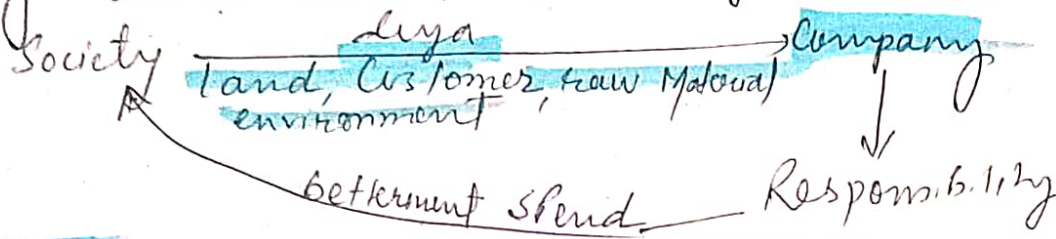 diya
Society Company
land, Customer, raw Material
environment
betterment spend Responsibility